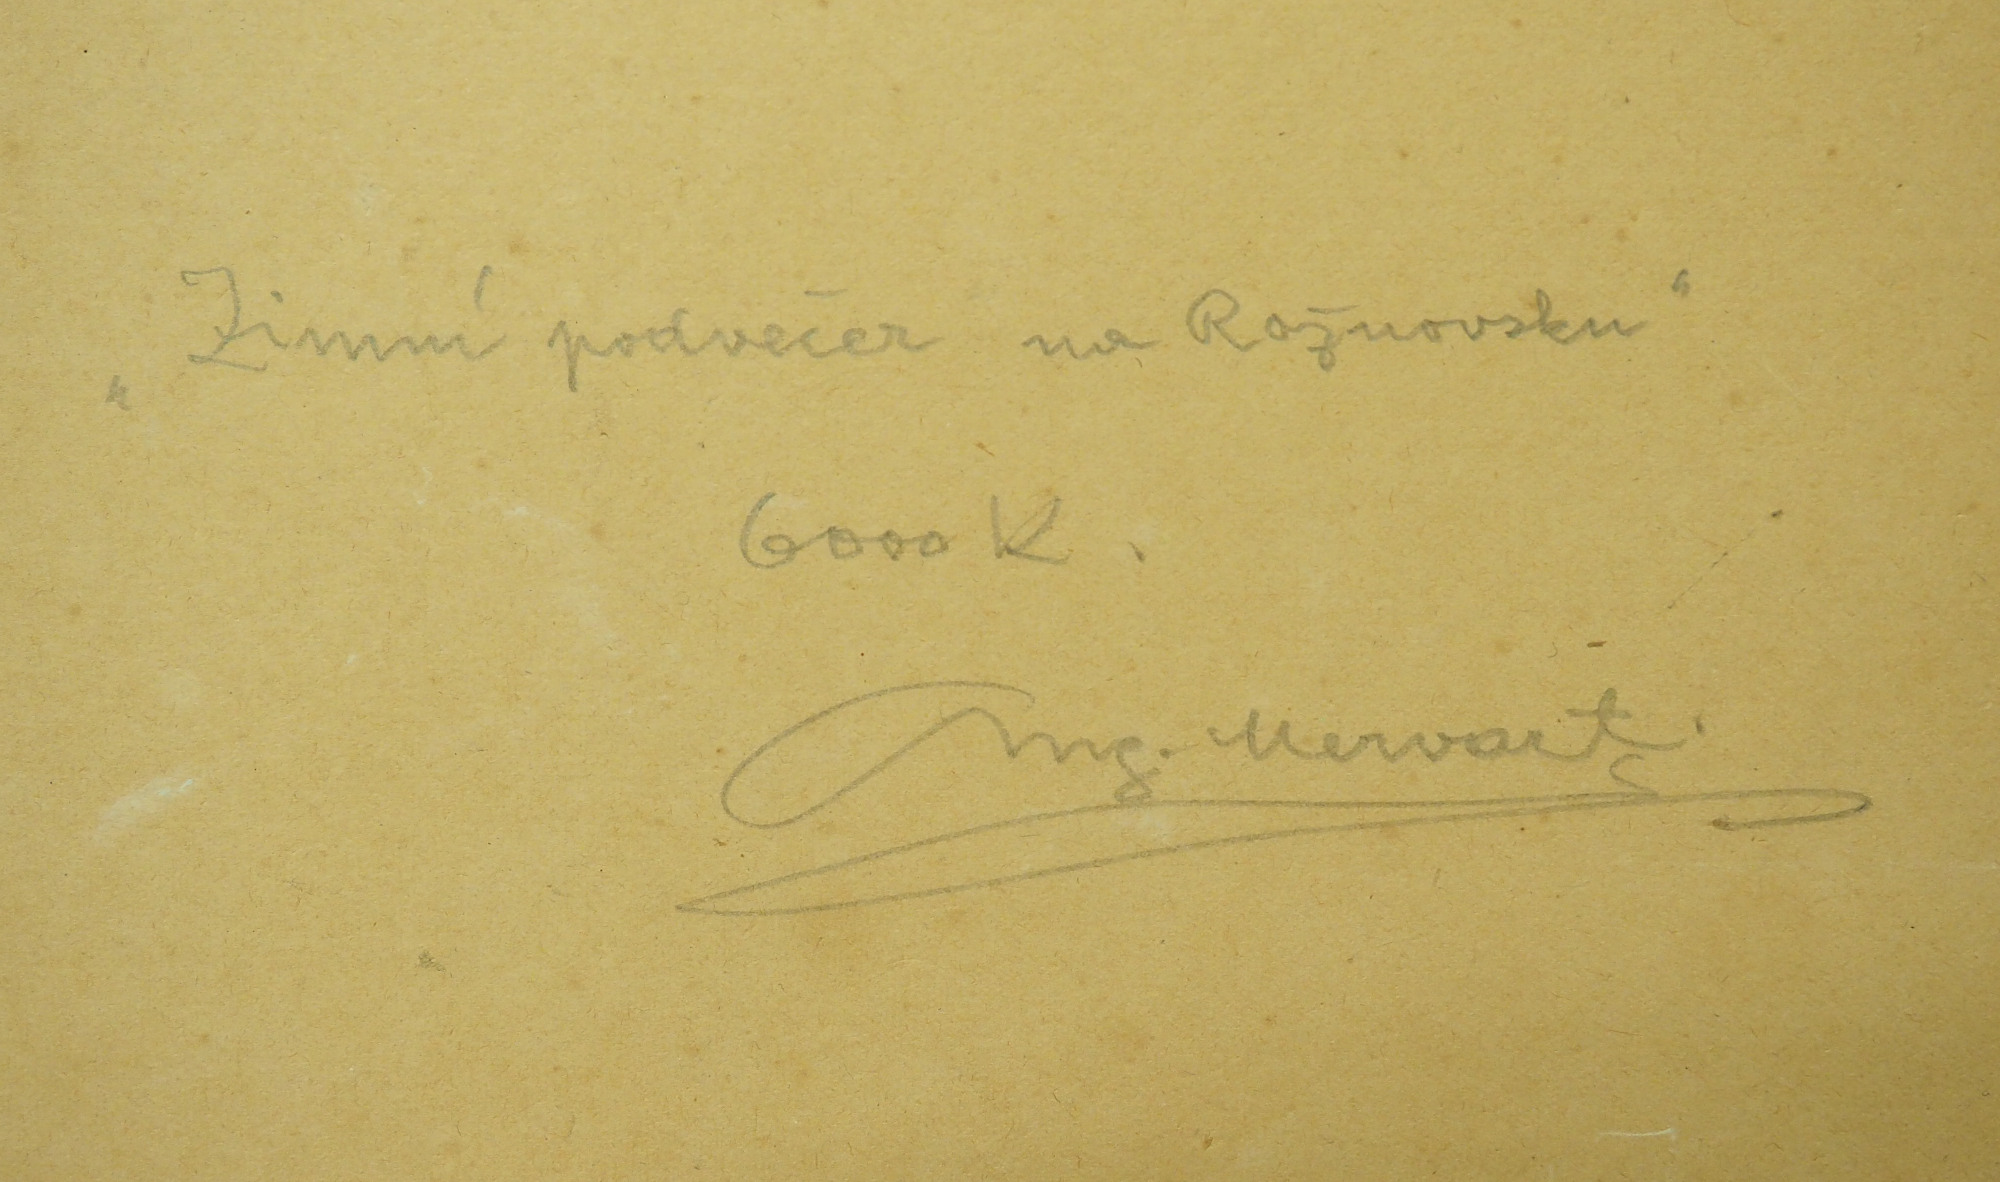 „Zimní podvečer na Rožnovsku“
6000 K.
Aug. Mervart.